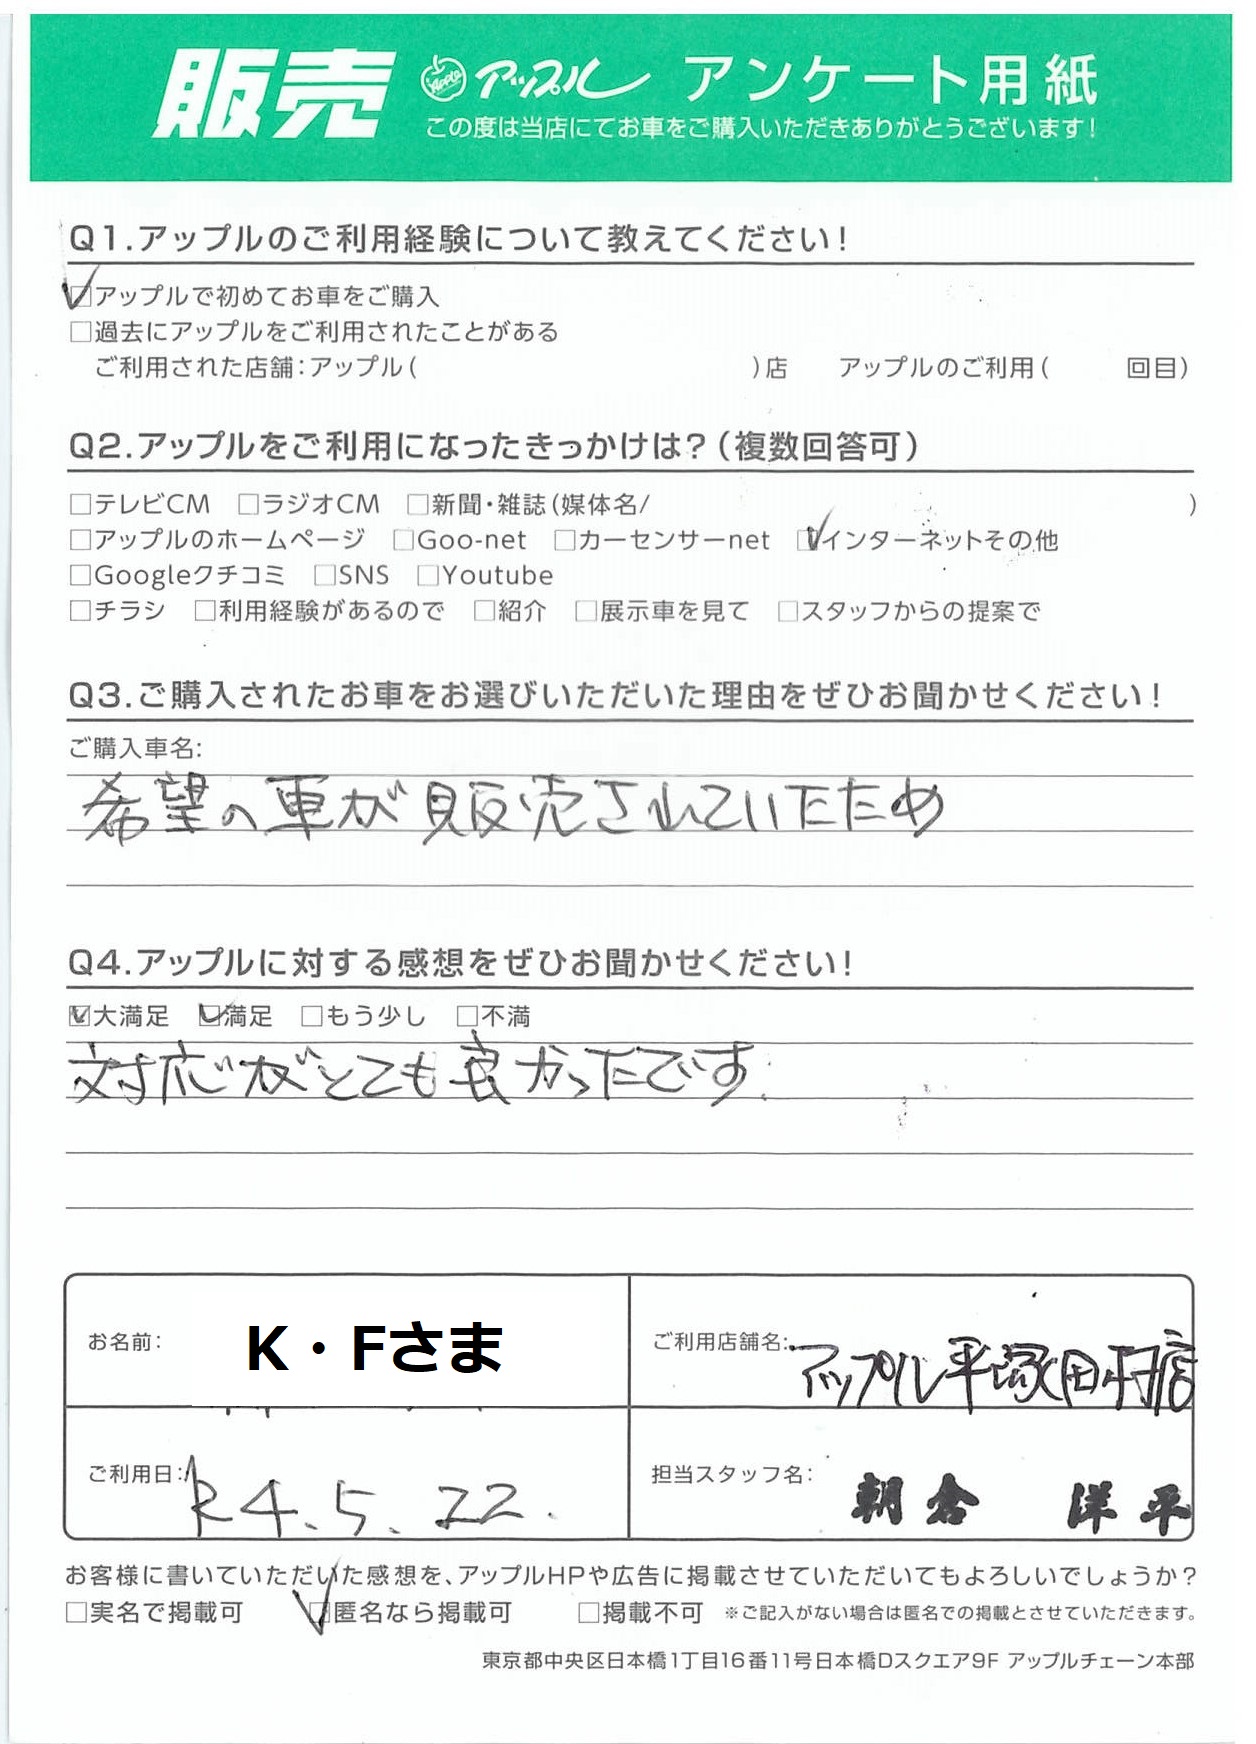 販売 Apple アップル アンケート用紙
この度は当店にてお車をご購入いただきありがとうございます!
Q1.アップルのご利用経験について教えてください!
☑アップルで初めてお車をご購入
□過去にアップルをご利用されたことがある
ご利用された店舗:アップル( )店 アップルのご利用( 回目)
Q2.アップルをご利用になったきっかけは?(複数回答可)
□テレビCM □ラジオCM □新聞・雑誌(媒体名/ )
□アップルのホームページ □Goo-net □カーセンサーnet ☑インターネットその他
□Googleクチコミ □SNS □Youtube
□チラシ □利用経験があるので □紹介 □展示車を見て □スタッフからの提案で
Q3.ご購入されたお車をお選びいただいた理由をぜひお聞かせください!
ご購入車名:
希望の車が販売されていたため
Q4.アップルに対する感想をぜひお聞かせください!
☑大満足 ☑満足 □もう少し □不満
対応がとても良かったです.
お名前: K・Fさま
ご利用店舗名: アップル平塚田村店
ご利用日: R4.5.22.
担当スタッフ名: 朝倉 洋平
お客様に書いていただいた感想を、アップルHPや広告に掲載させていただいてもよろしいでしょうか?
□実名で掲載可 ☑匿名なら掲載可 □掲載不可 ※ご記入がない場合は匿名での掲載とさせていただきます。
東京都中央区日本橋1丁目16番11号日本橋Dスクエア9F アップルチェーン本部